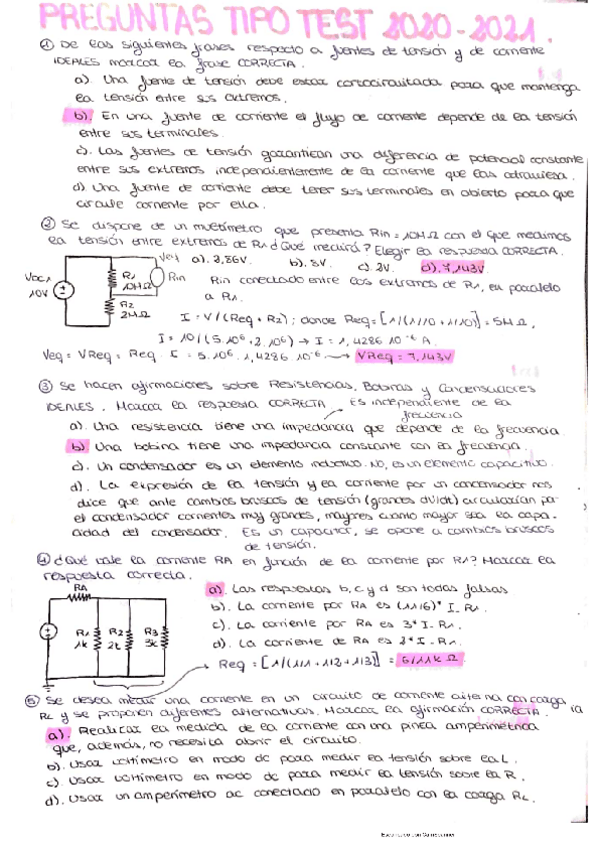 PREGUNTAS TIPO TEST 2020-2021.
① De las siguientes frases respecto a fuentes de tensión y de corriente
IDEALES marcar la frase CORRECTA.
a). Una fuente de tensión debe estar cortocircuitada para que mantenga
la tensión entre sus extremos.
b). En una fuente de corriente el flujo de corriente depende de la tensión
entre sus terminales.
c). Las fuentes de tensión garantican una diferencia de potencial constante
entre sus extremos independientemente de la corriente que las atraviesa.
d) Una fuente de corriente debe tener sus terminales en abierto para que
circule corriente por ella.
② Se dispone de un multímetro que presenta Rin = 10MΩ con el que medimos
la tensión entre extremos de R1 ¿Qué medirá? Elegir la respuesta CORRECTA.
Veq a). 3,86V. b). 8V. c). 2V. d). 7,143V
VDC1
10V
R1
10MΩ
Rin
R2
2MΩ
Rin conectado entre los extremos de R1, en paralelo
a R1.
I = V/(Req + R2) ; donde Req = [1/(1/10 + 1/10)] = 5MΩ,
I = 10/(5·10⁶ + 2·10⁶) → I = 1,4286·10⁻⁶ A.
Veq = VReq = Req · I = 5·10⁶ · 1,4286·10⁻⁶ → VReq = 7,143V
③ Se hacen afirmaciones sobre Resistencias, Bobinas y Condensadores
IDEALES. Marcar la respuesta CORRECTA. Es independiente de la
frecuencia
a). Una resistencia tiene una impedancia que depende de la frecuencia.
b) Una bobina tiene una impedancia constante con la frecuencia.
c). Un condensador es un elemento inductivo. No, es un elemento capacitivo.
d). La expresión de la tensión y la corriente por un condensador nos
dice que ante cambios bruscos de tensión (grandes dV/dt) circularían por
el condensador corrientes muy grandes, mayores cuanto mayor sea la capa-
cidad del condensador. Es un capacitor, se opone a cambios bruscos
de tensión.
④ ¿Qué vale la corriente RA en función de la corriente por R1? Marcar la
respuesta correcta.
RA
R1
1k
R2
2k
R3
3k
a). Las respuestas b, c y d son todas falsas
b). La corriente por RA es (11/6)* I_R1.
c). La corriente por RA es 3* I_R1.
d). La corriente de RA es 2* I_R1.
Req = [1/(1/1 + 1/2 + 1/3)] = 6/11k Ω
⑤ Se desea medir una corriente en un circuito de corriente alterna con carga
RL y se proponen diferentes alternativas. Marcar la afirmación CORRECTA.
a). Realizar la medida de la corriente con una pinza amperimétrica
que, además, no necesita abrir el circuito.
b). Usar voltímetro en modo dc para medir la tensión sobre la L.
c). Usar voltímetro en modo dc para medir la tensión sobre la R.
d). Usar un amperímetro ac conectado en paralelo con la carga RL.
Escaneado con CamScanner